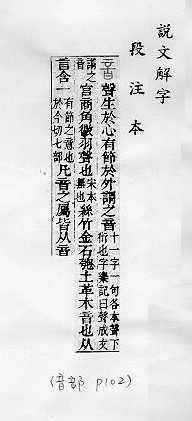 說文解字
段注本
音 聲生於心有節於外謂之音十一字一句各本聲下衍也字樂記曰聲成文
謂之音宮商角徵羽聲也宋本無也絲竹金石匏土革木音也从
言含一有節之意也於今切七部凡音之屬皆从音
(音部 P102)